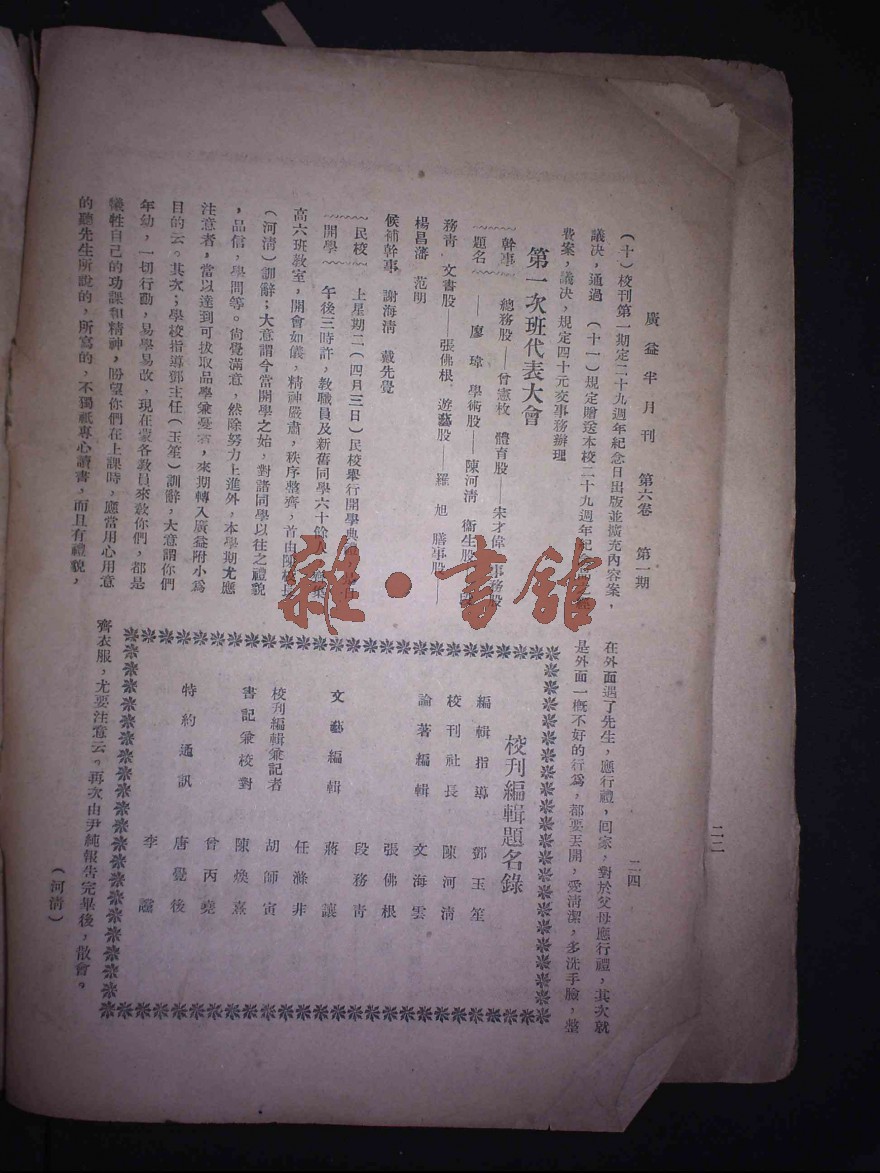 廣益半月刊　第六卷　第一期
二四
(十)校刊第一期定二十九週年紀念日出版並擴充內容案，
議決，通過　(十一)規定贈送本校二十九週年紀
費案，議決，規定四十元交事務辦理
第一次班代表大會
幹事
題名
總務股——曾憲枚　體育股——宋才偉　事務股
——廖瑋　學術股——陳河清　衞生股
務青　文書股——張佛根，遊藝股——羅旭　膳事股——
楊昌濬　范明
候補幹事　謝海清　戴先覺
民校
開學
上星期二(四月三日)民校舉行開學典
午後三時許，敎職員及新舊同學六十餘
高六班敎室，開會如儀，精神嚴肅，秩序整齊，首由陳校長
(河清)訓辭；大意謂今當開學之始，對諸同學以往之禮貌
，品信，學問等。尙覺滿意，然除努力上進外，本學期尤應
注意者，當以達到可拔取品學兼優者，來期轉入廣益附小爲
目的云。其次；學校指導鄧主任(玉笙)訓辭，大意謂你們
年幼，一切行動，易學易改，現在蒙各敎員來敎你們，都是
犧牲自己的功課和精神，盼望你們在上課時，應當用心用意
的聽先生所說的，所寫的，不獨祇專心讀書，而且有禮貌，
在外面遇了先生，應行禮，回家，對於父母應行禮，其次就
是外面一槪不好的行爲，都要丟開，愛淸潔，多洗手臉，整
齊衣服，尤要注意云。再次由尹純報告完畢後，散會。
(河清)
校刊編輯題名錄
編輯指導　鄧玉笙
校刊社長　陳河清
論著編輯　文海雲
張佛根
段務青
文藝編輯　蔣讓
任滌非
校刊編輯兼記者　胡師寅
書記兼校對　陳煥熹
曾丙堯
特約通訊　唐覺後
李
二二
雜·書館